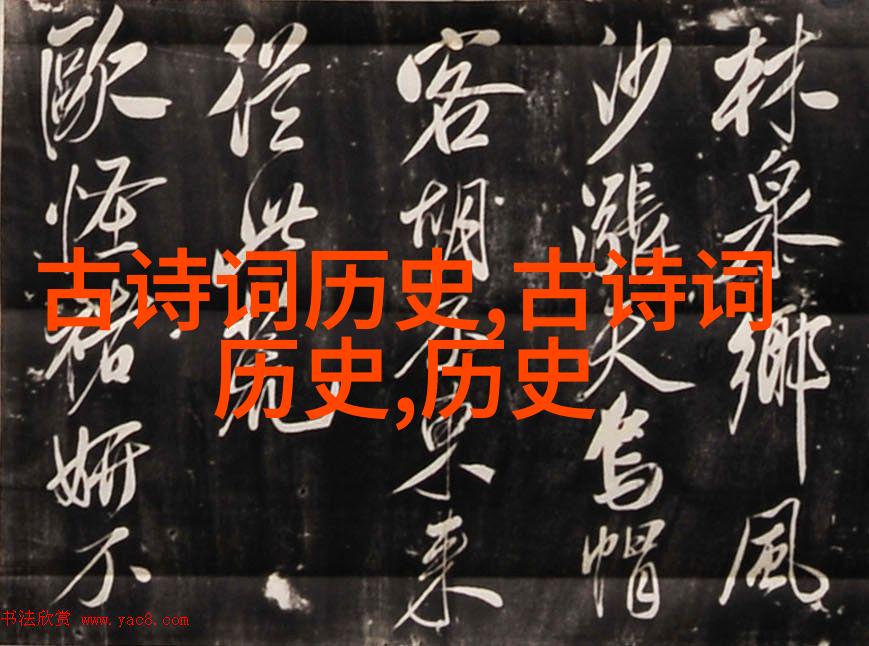 林泉鄉風
沙漲天烏帽
客胡東来
從此
歐怪褚妍不
古诗词历史,古诗词
历史,历史
书法欣赏 www.yac8.com